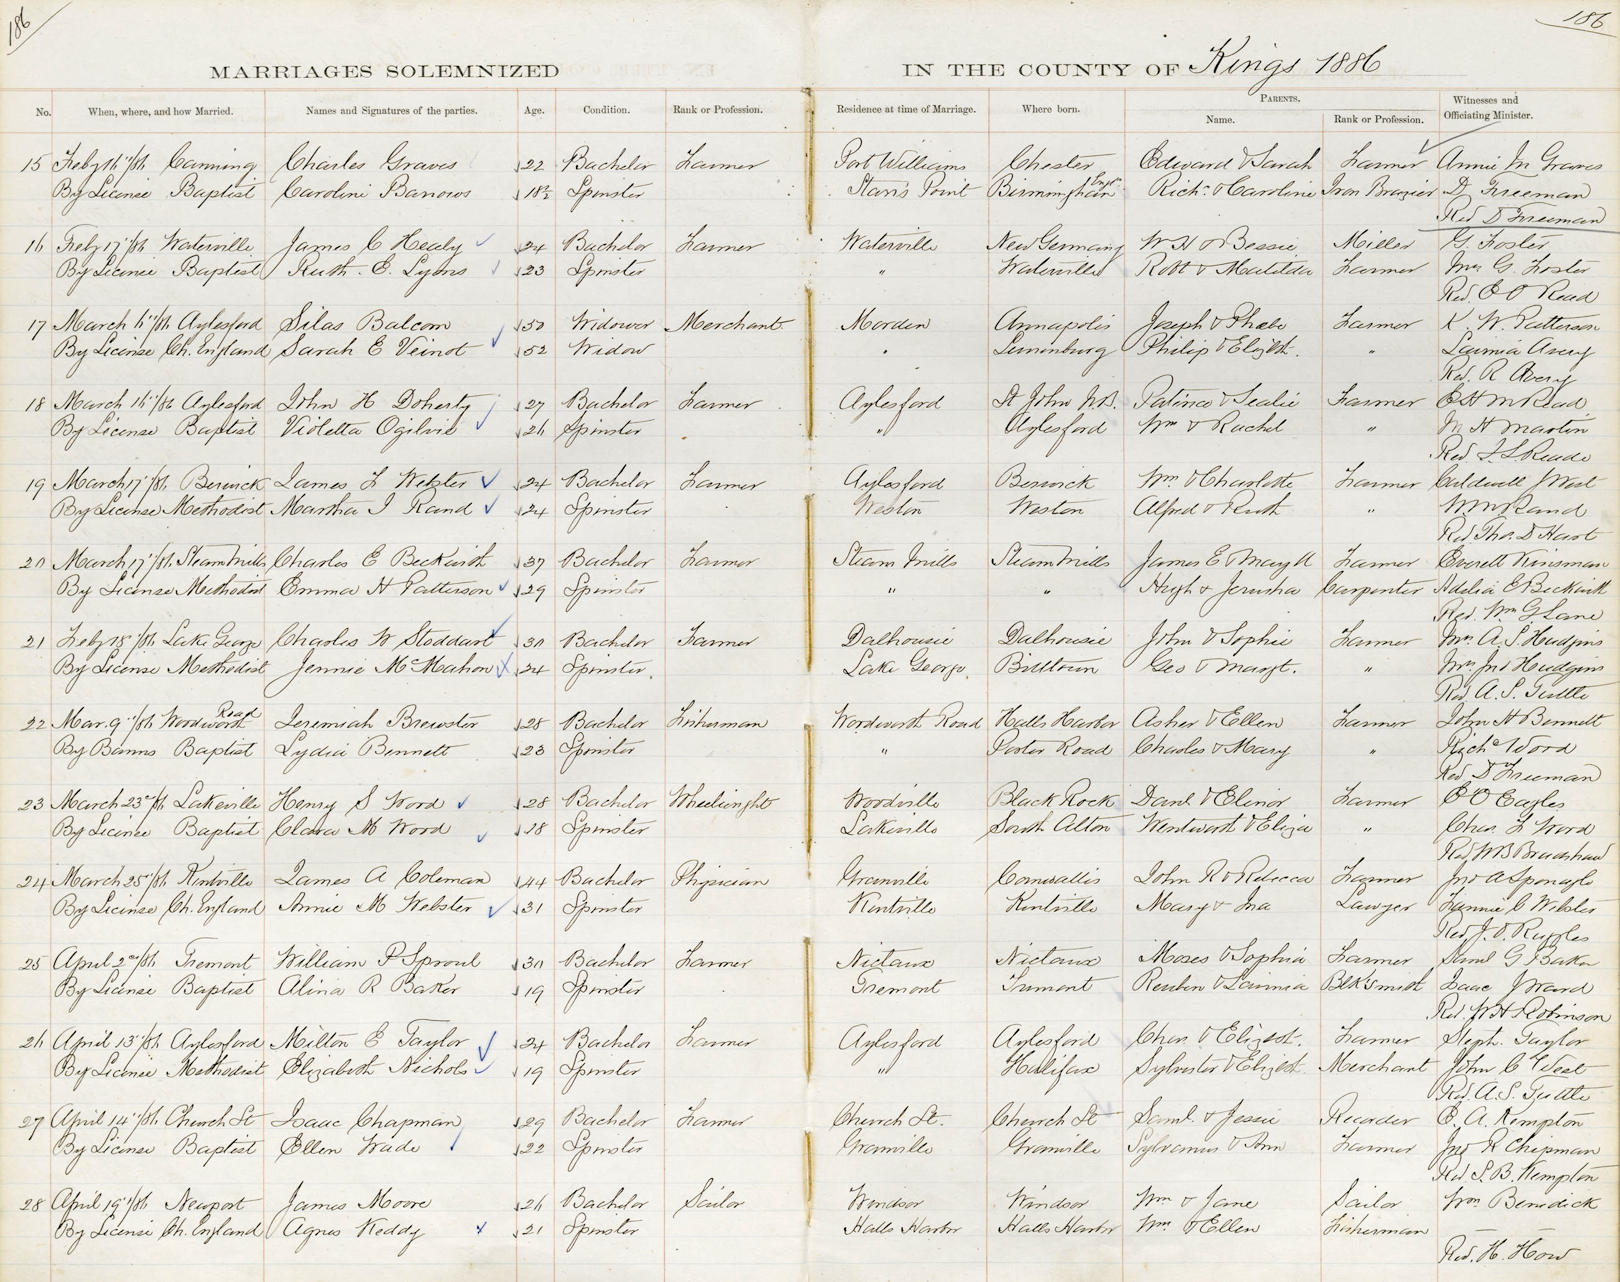 186
186
MARRIAGES SOLEMNIZED IN THE COUNTY OF Kings 1886
PARENTS.
No. When, where, and how Married. Names and Signatures of the parties. Age. Condition. Rank or Profession. Residence at time of Marriage. Where born. Name. Rank or Profession. Witnesses and Officiating Minister.
15 Feby 16"/86 Canning Charles Graves 22 Bachelor Farmer Port Williams Chester Edward & Sarah Farmer Annie M Graves
By License Baptist Caroline Barrows 18½ Spinster Starr's Point Birmingham Engd Richd & Caroline Iron Brazier D Freeman
Red D Freeman
16 Feby 17"/86 Waterville James C Healy 24 Bachelor Farmer Waterville New Germany W H & Bessie Miller G. Foster
By License Baptist Ruth. E. Lyons 23 Spinster " Waterville Robt & Matilda Farmer Mrs G. Foster
Red. E O Read
17 March 11"/86 Aylesford Silas Balcom 50 Widower Merchant Morden Annapolis Joseph & Phebe Farmer K. W. Patterson
By License Ch. England Sarah E Veinot 52 Widow " Lunenburg Philip & Elizbth. " Lavinia Avery
Red. R Avery
18 March 16"/86 Aylesford John H Doherty 27 Bachelor Farmer Aylesford St John N.B. & Farmer Read
By License Baptist Violetta Ogilvie 26 Spinster " Aylesford Wm & Rachel " M H Martin
Red. J. L Reade
19 March 17"/86 Berwick James F Webster 24 Bachelor Farmer Aylesford Berwick Wm & Charlotte Farmer Caldwell J West
By License Methodist Martha J Rand 24 Spinster Weston Weston Alfred & Ruth " Rand
Red. Thos. D Hart
20 March 17"/86 Steam Mills Charles E Beckwith 37 Bachelor Farmer Steam Mills Steam Mills James E & Mary A Farmer Everett Kinsman
By License Methodist Emma H Patterson 29 Spinster " " Hugh & Jerusha Carpenter Adelia E Beckwith
Red. Wm G Lane
21 Feby 18"/86 Lake George Charles W Stoddart 30 Bachelor Farmer Dalhousie Dalhousie John & Sophie Farmer Mrs. A. S. Hudgins
By License Methodist Jennie McMahon 24 Spinster. Lake George. Billtown Geo & Margt. " Mrs Jno Hudgins
Red. A. S. Tuttle
22 Mar. 9"/86 Woodworth Road Jeremiah Brewster 28 Bachelor Fisherman Woodworth Road Halls Harbor Asher & Ellen Farmer John H Bennett
By Banns Baptist Lydia Bennett 23 Spinster " Porter Road Charles & Mary " Richd Wood
Red D Freeman
23 March 23d/86 Lakeville Henry S Wood 28 Bachelor Wheelwright Woodville Black Rock Danl & Elinor Farmer E O Eagles
By License Baptist Clara M Wood 18 Spinster Lakeville South Alton Wentworth & Eliza " Chas. F Wood
Red W B Bradshaw
24 March 25"/86 Kentville James A Coleman 44 Bachelor Physician Granville Cornwallis John R & Rebecca Farmer Jno A Sponagle
By License Ch. England Annie M Webster 31 Spinster Kentville Kentville Mary & Ina Lawyer Fannie C Webster
Red. J. O. Ruggles
25 April 2nd/86 Tremont William P Sproul 30 Bachelor Farmer Nictaux Nictaux Moses & Sophia Farmer G Baker
By License Baptist Alina R Baker 19 Spinster Tremont Tremont Reuben & Lavinia Blk'smith Isaac J Ward
Red. W H Robinson
26 April 13"/86 Aylesford Milton E Taylor 24 Bachelor Farmer Aylesford Aylesford Chas. & Elizbth. Farmer Steph. Taylor
By License Methodist Elizabeth Nichols 19 Spinster " Halifax Sylvester & Elizbth. Merchant John C West
Red. A. S. Tuttle
27 April 14"/86 Church St Isaac Chapman 29 Bachelor Farmer Church St. Church St Saml. & Jessie Recorder E. A. Kempton
By License Baptist Ellen Wade 22 Spinster Granville Granville Sylvanus & Ann Farmer Jno R Chipman
Red. S. B. Kempton
28 April 19"/86 Newport James Moore 26 Bachelor Sailor Windsor Windsor Wm & Jane Sailor Wm Benidick
By License Ch. England Agnes Keddy 21 Spinster Halls Harbor Halls Harbor Wm. & Ellen Fisherman
Red. H. How